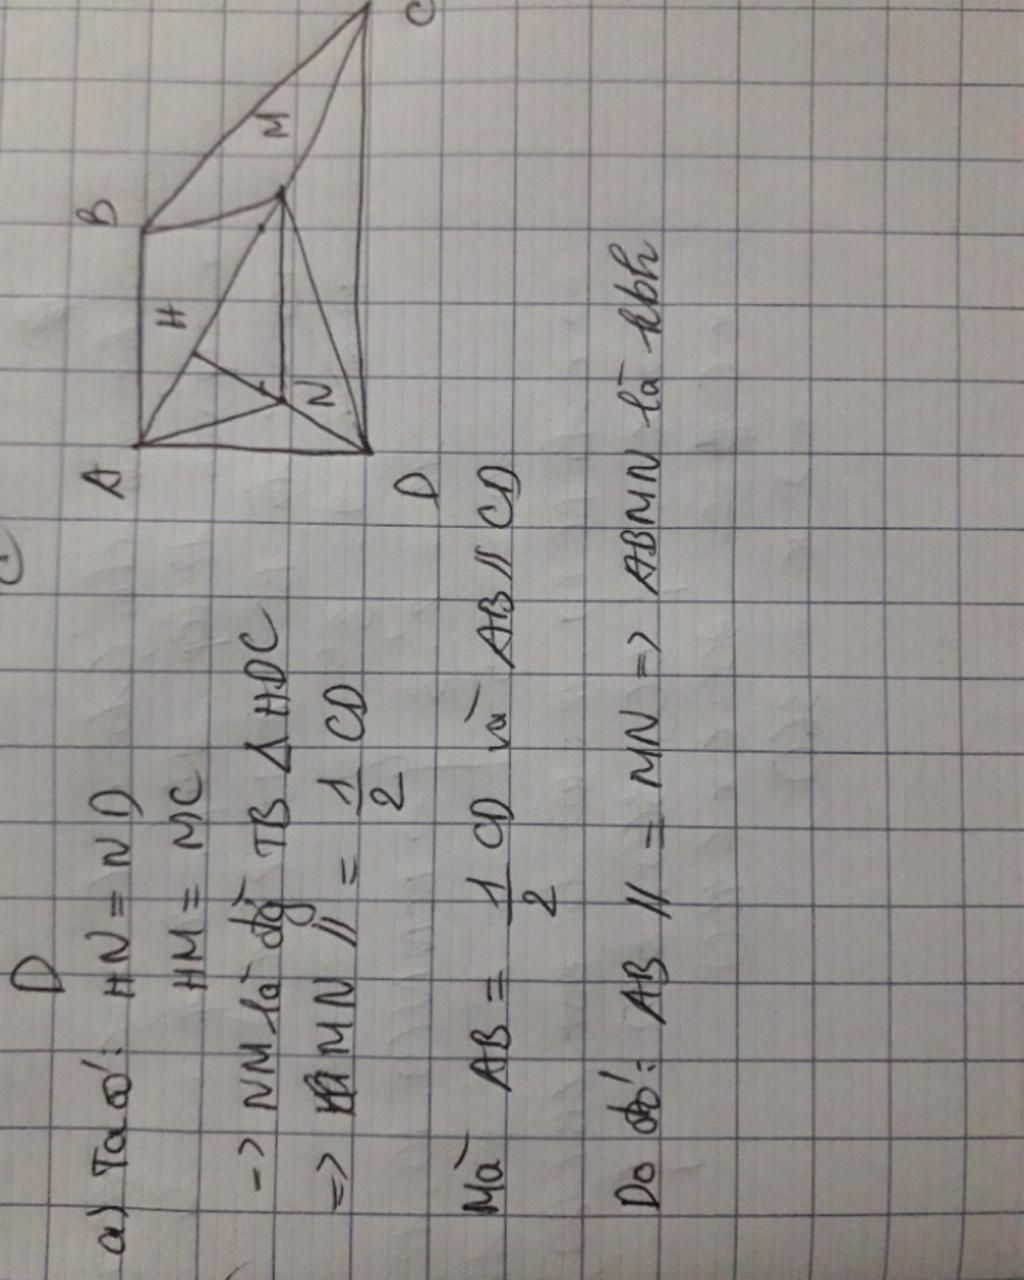 C
D
a) Ta có: HN = ND
HM = MC
-> NM là đg TB Δ HDC
=> MN // = 1/2 CD
Mà AB = 1/2 CD và AB // CD
Do đó: AB // = MN => ABMN là hbh
A
B
H
M
N
D
C